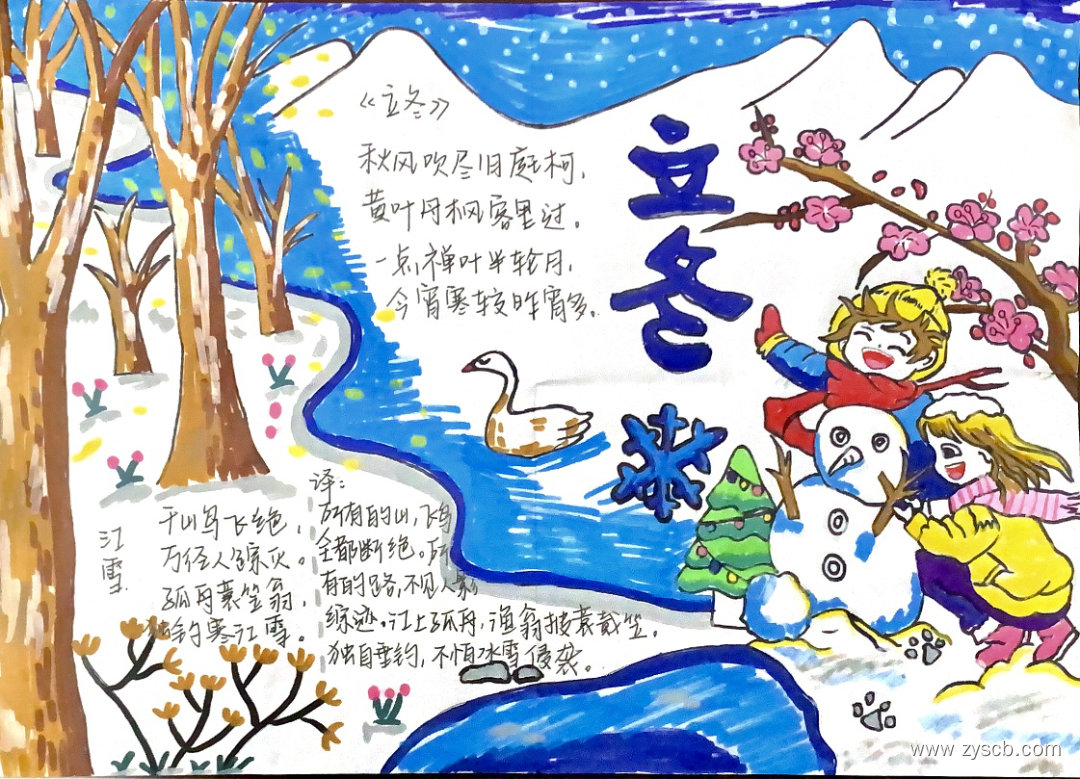 《立冬》
秋风吹尽旧庭柯，
黄叶丹枫客里过。
一点禅叶半轮月，
今宵寒较昨宵多。
立冬
江雪
千山鸟飞绝，
万径人踪灭。
孤舟蓑笠翁，
独钓寒江雪。
译：
所有的山，飞鸟
全都断绝。所
有的路，不见人影
综迹。江上孤舟，渔翁披蓑戴笠。
独自垂钓，不怕冰雪侵袭。
www.zyscb.com